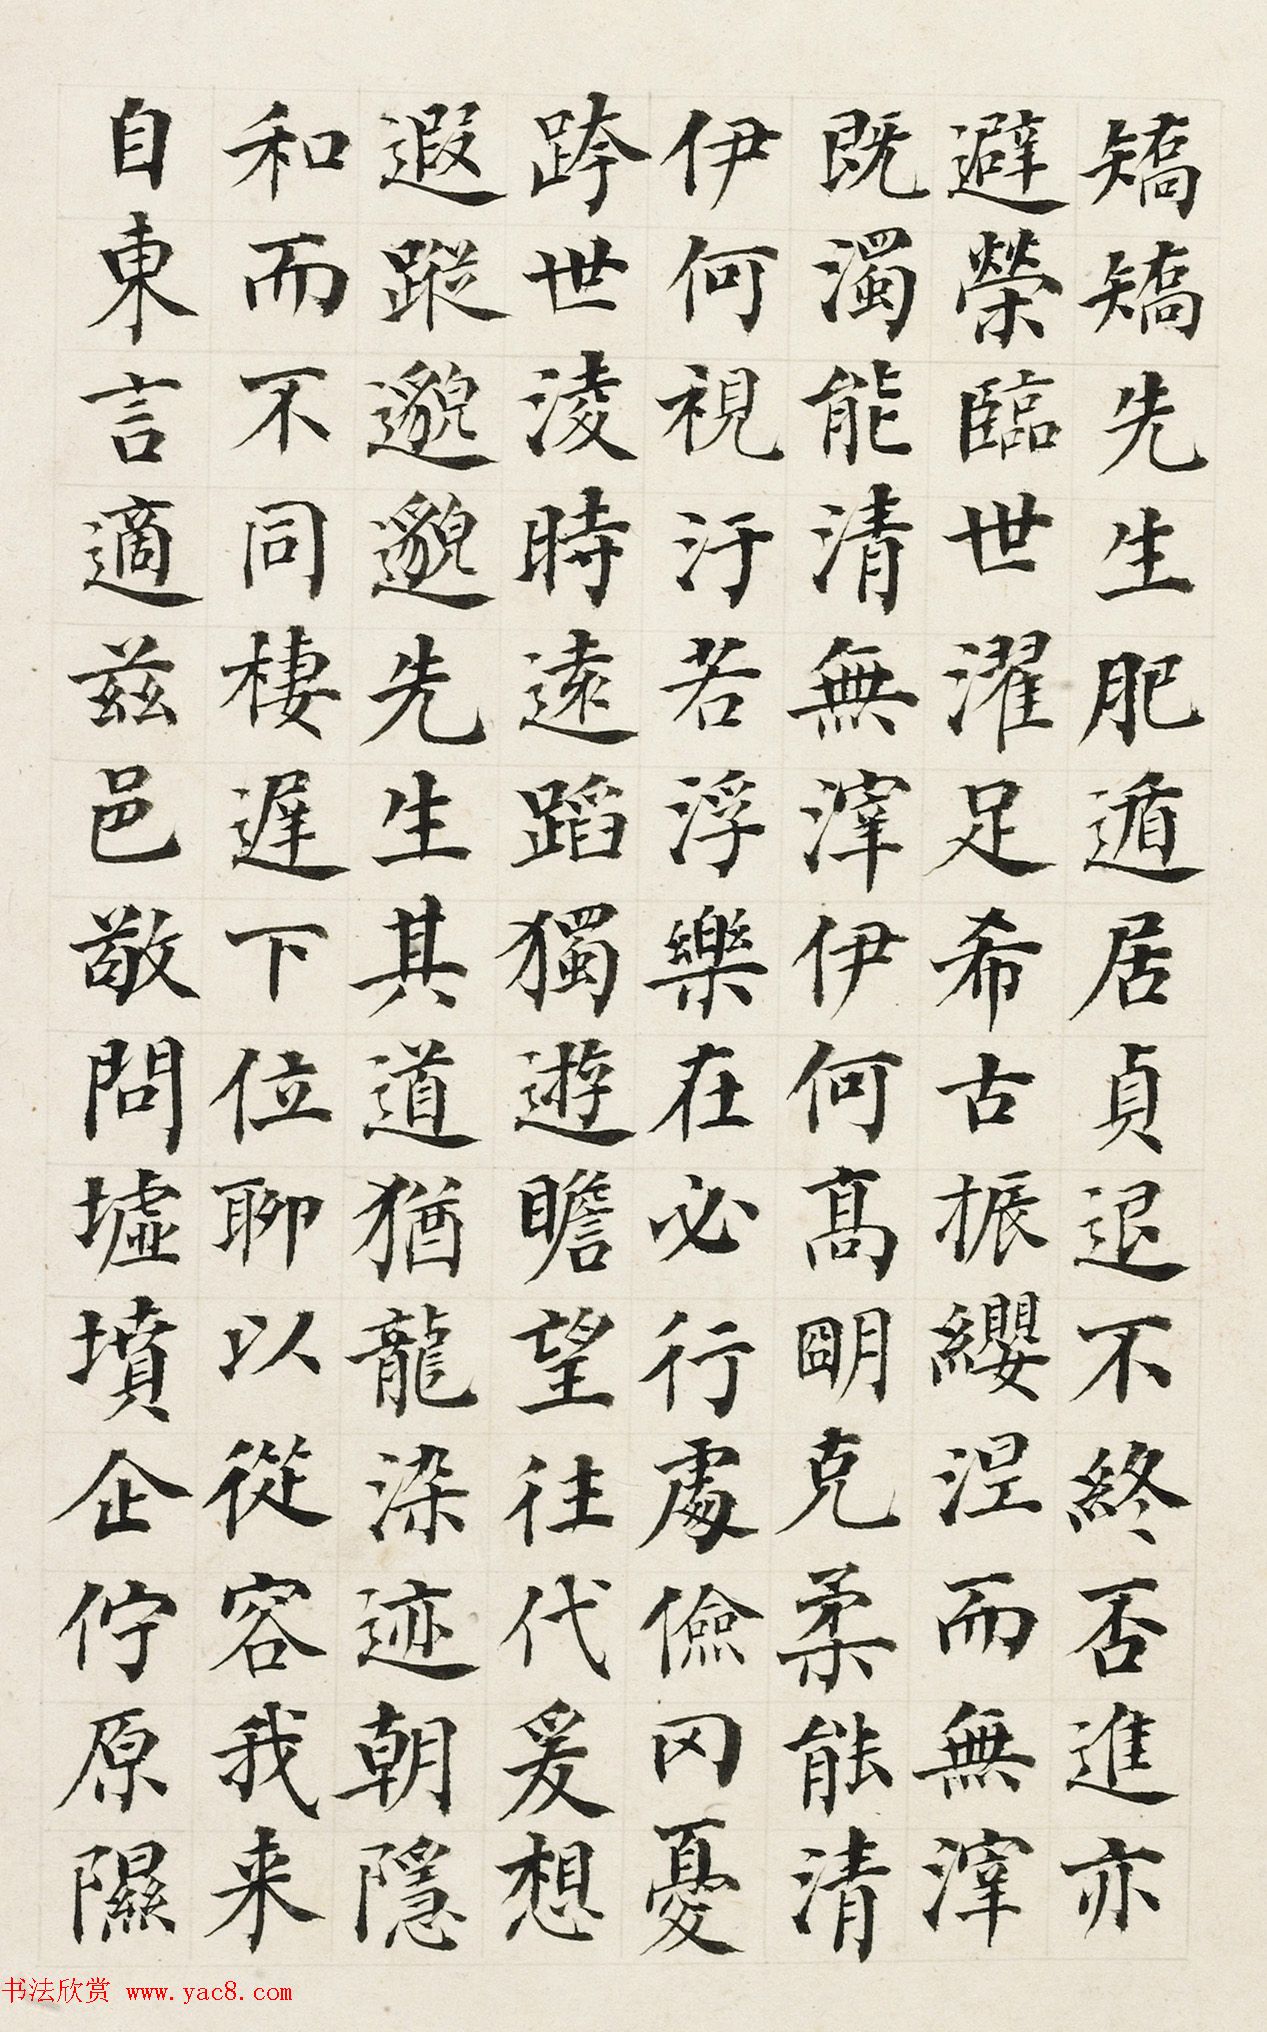 矯矯先生肥遁居貞退不終否進亦
避榮臨世濯足希古振纓涅而無滓
既濁能清無滓伊何髙明克柔能清
伊何視汙若浮樂在必行處儉罔憂
跨世淩時遠蹈獨遊瞻望往代爰想
遐蹤邈邈先生其道猶龍染迹朝隱
和而不同棲遲下位聊以從容我来
自東言適茲邑敬問墟墳企佇原隰
书法欣赏 www.yac8.com